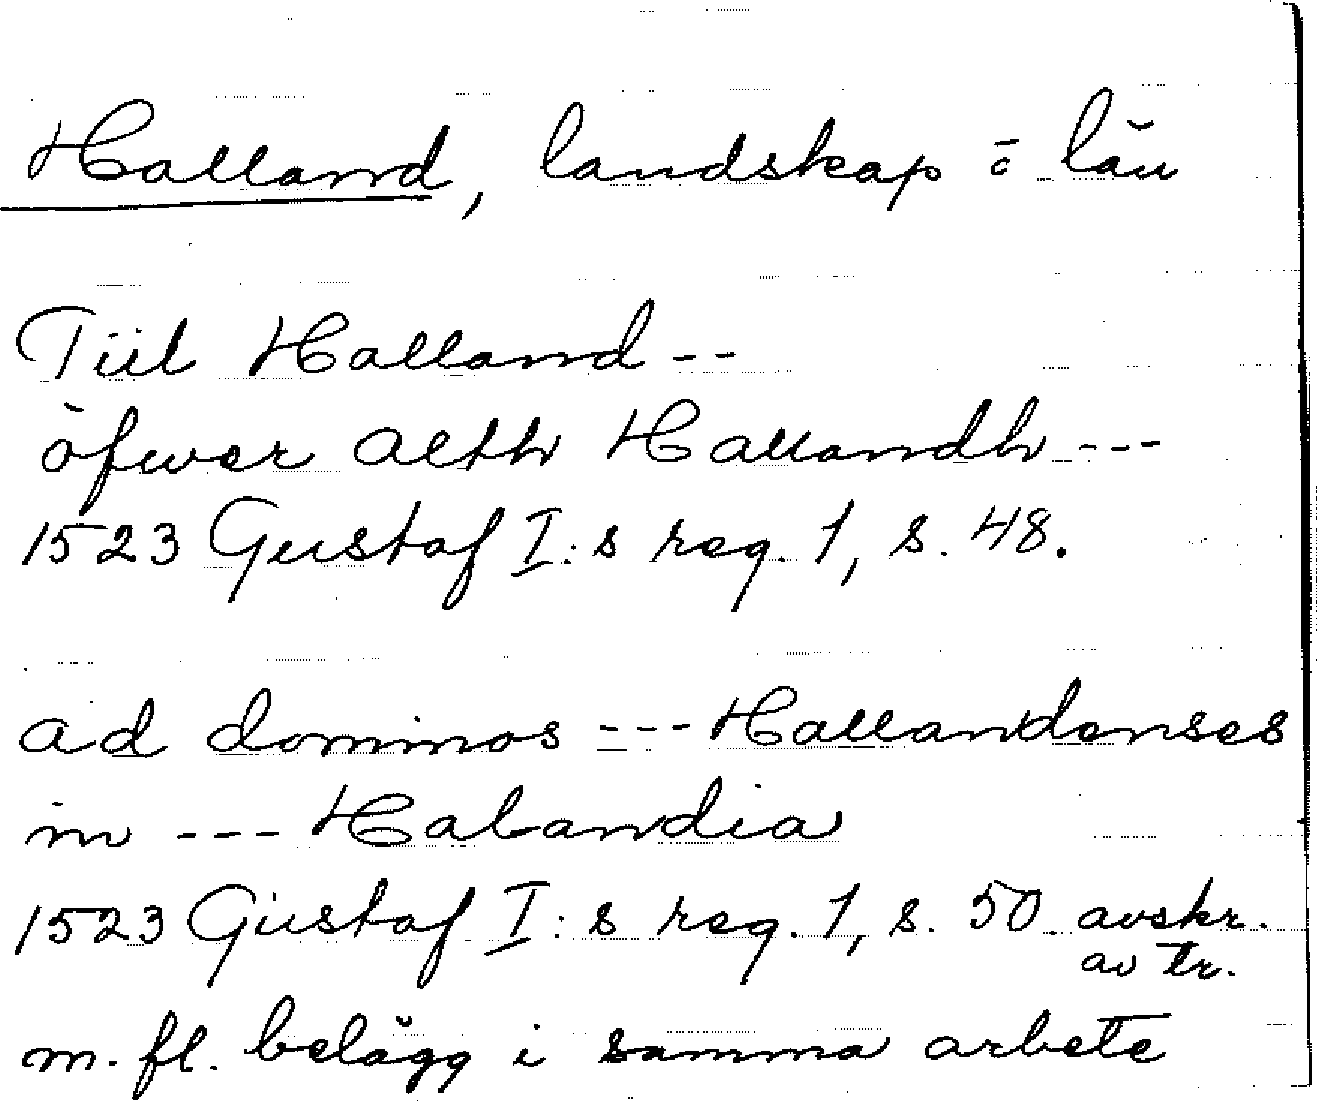 Halland, landskap o län
Tiil Halland --
öfwer alth Hallandh ---
1523 Gustaf I:s reg. 1, s. 48.
ad dominos --- Hallandenses
in --- Halandia
1523 Gustaf I:s reg. 1, s. 50 avskr.
av tr.
m. fl. belägg i samma arbete